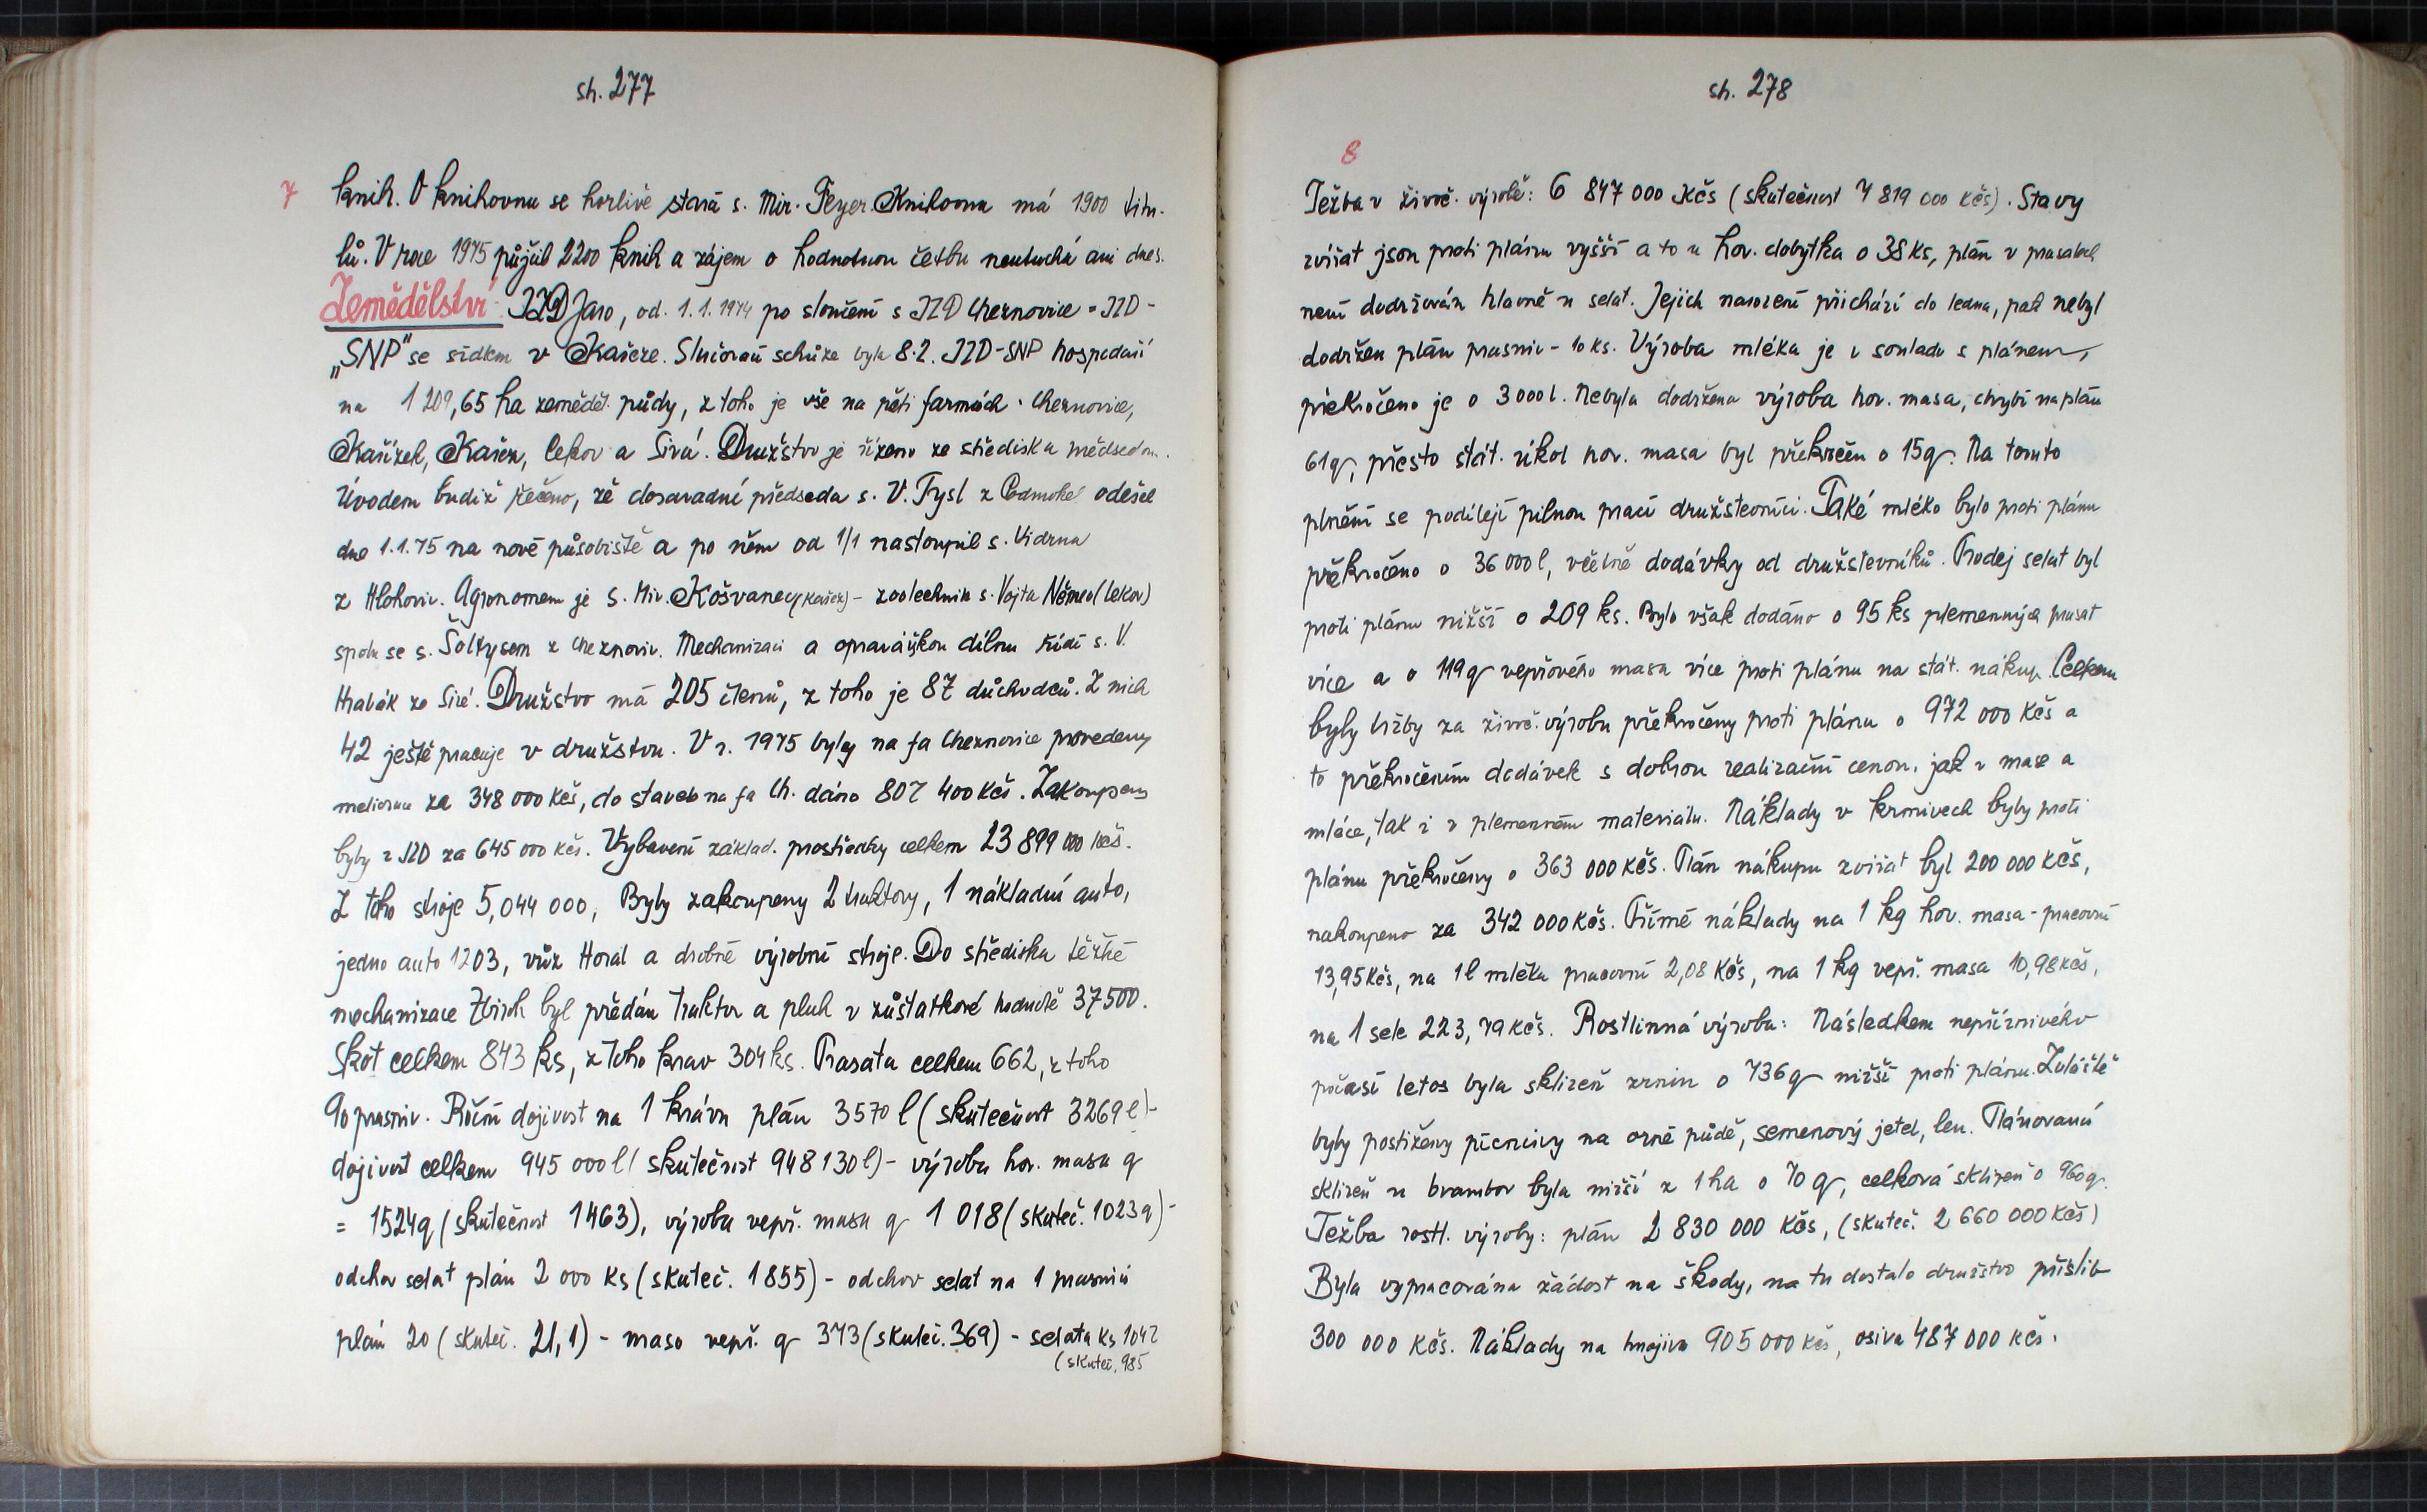 str. 277
7 knih. O knihovnu se horlivě stará s. Mir. Feyer. Knihovna má 1900 titu-
lů. V roce 1975 půjčil 2200 knih a zájem o hodnotnou četbu neutuchá ani dnes.
Zemědělství: JZD Jaro, od. 1.1.1974 po sloučení s JZD Cheznovice = JZD -
„SNP" se sídlem v Kařeze. Slučovací schůze byla 8.2. JZD-SNP hospodaří
na 1 209,65 ha zeměděl. půdy, z toho je vše na pěti farmách. Cheznovice,
Kařízek, Kařez, Cekov a Sirá. Družstvo je řízeno ze střediska
Úvodem budiž řečeno, že dosavadní předseda s. V. Fysl z Podmokel odešel
dne 1.1.75 na nové působiště a po něm od 1/1 nastoupil s. Vidrna
z Hlohovic. Agronomem je s. Mir. Košvanec (Kařez) - zootechnik s. Vojta Němec (Cekov)
spolu se s. Šoltysem z Cheznovic. Mechanizaci a opravářskou dílnu řídí s. V.
Hrabák ze Siré. Družstvo má 205 členů, z toho je 87 důchodců. Z nich
42 ještě pracuje v družstvu. V r. 1975 byly na fa Cheznovice provedeny
meliorace za 348 000 Kčs, do staveb na fa Ch. dáno 807 400 Kčs. Zakoupeny
byly z JZD za 645 000 Kčs. Vybavení základ. prostředky celkem 23 899 000 Kčs.
Z toho stroje 5,044 000, Byly zakoupeny 2 traktory, 1 nákladní auto,
jedno auto 1203, vůz Horal a drobné výrobní stroje. Do střediska těžké
mechanizace Zbiroh byl předán traktor a pluh v zůstatkové hodnotě 37500.
Skot celkem 843 ks, z toho krav 304 ks. Prasata celkem 662, z toho
90 prasnic. Roční dojivost na 1 krávu plán 3570 l (skutečnost 3269 l) -
dojivost celkem 945 000 l (skutečnost 948 130 l) - výroba hov. masa q
= 1524q (skutečnost 1463), výroba vepř. masa q 1 018 (skuteč. 1023 q) -
odchov selat plán 2 000 ks (skuteč. 1855) - odchov selat na 1 prasnici
plán 20 (skuteč. 21,1) - maso vepř. q 373 (skuteč. 369) - selata ks 1042
(skuteč. 985
str. 278
8
Težba v živoč. výrobě: 6 847 000 Kčs (skutečnost 7 819 000 Kčs). Stavy
zvířat jsou proti plánu vyšší a to u hov. dobytka o 38 ks, plán v prasatech
není dodržován hlavně u selat. Jejich narození přichází do ledna, pak nebyl
dodržen plán prasnic - 10 ks. Výroba mléka je v souladu s plánem,
překročeno je o 3000 l. Nebyla dodržena výroba hov. masa, chybí na plán
61q, přesto stát. úkol hov. masa byl překročen o 15q. Na tomto
plnění se podílejí pilnou prací družstevníci. Také mléko bylo proti plánu
překročeno o 36 000 l, včetně dodávky od družstevníků. Prodej selat byl
proti plánu nižší o 209 ks. Bylo však dodáno o 95 ks plemenných prasat
více a o 119q vepřového masa více proti plánu na stát. nákup. Celkem
byly tržby za živoč. výrobu překročeny proti plánu o 972 000 Kčs a
to překročením dodávek s dobrou realizační cenou, jak v mase a
mléce, tak i v plemenném materiálu. Náklady v krmivech byly proti
plánu překročeny o 363 000 Kčs. Plán nákupu zvířat byl 200 000 Kčs,
nakoupeno za 342 000 Kčs. Přímé náklady na 1 kg hov. masa - pracovní
13,95 Kčs, na 1 l mléka pracovní 2,08 Kčs, na 1 kg vepř. masa 10,98 Kčs,
na 1 sele 223,79 Kčs. Rostlinná výroba: Následkem nepříznivého
počasí letos byla sklizeň zrnin o 736q nižší proti plánu. Zvláště
byly postiženy pícniny na orné půdě, semenový jetel, len. Plánovaná
sklizeň u brambor byla nižší z 1 ha o 70 q, celková sklizeň o 960q.
Težba rostl. výroby: plán 2 830 000 Kčs, (skuteč. 2 660 000 Kčs)
Byla vypracována žádost na škody, na tu dostalo družstvo příslib
300 000 Kčs. Náklady na hnojiva 905 000 Kčs, osiva 487 000 Kčs.